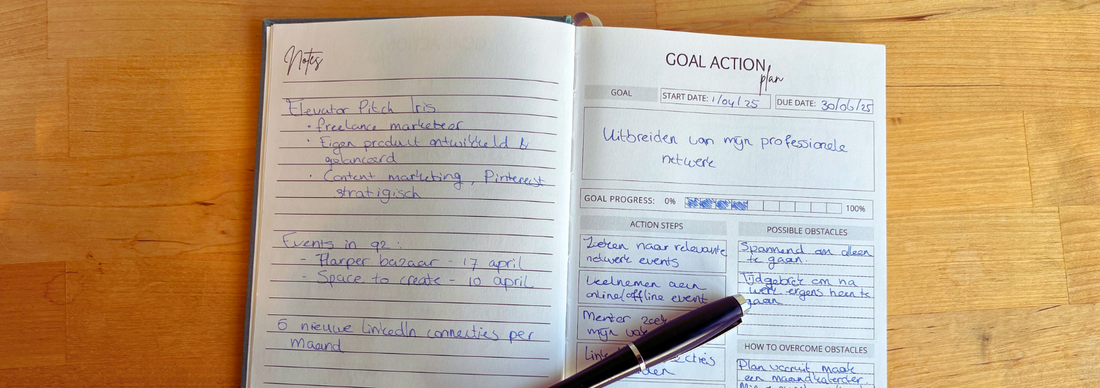 Notes
Elevator Pitch Iris
• freelance marketeer
• Eigen product ontwikkeld &
gelanceerd
• Content marketing, Pinterest
stratigisch
Events in q2:
- Harper bazaar - 17 april
- Space to create - 10 april
5 nieuwe linkedIn connecties per
maand
GOAL ACTION
plan
GOAL
START DATE: 1/04/25
DUE DATE: 30/06/25
Uitbreiden van mijn professionele
netwerk
GOAL PROGRESS: 0%
100%
ACTION STEPS
Zoeken naar relevante
netwerk events
Deelnemen aan
online/offline event
Mentor
mijn
POSSIBLE OBSTACLES
Spannend om alleen
te gaan.
Tijdgebrek om na
werk ergens heen te
gaan
HOW TO OVERCOME OBSTACLES
Plan vooruit, maak
een maandkalender.